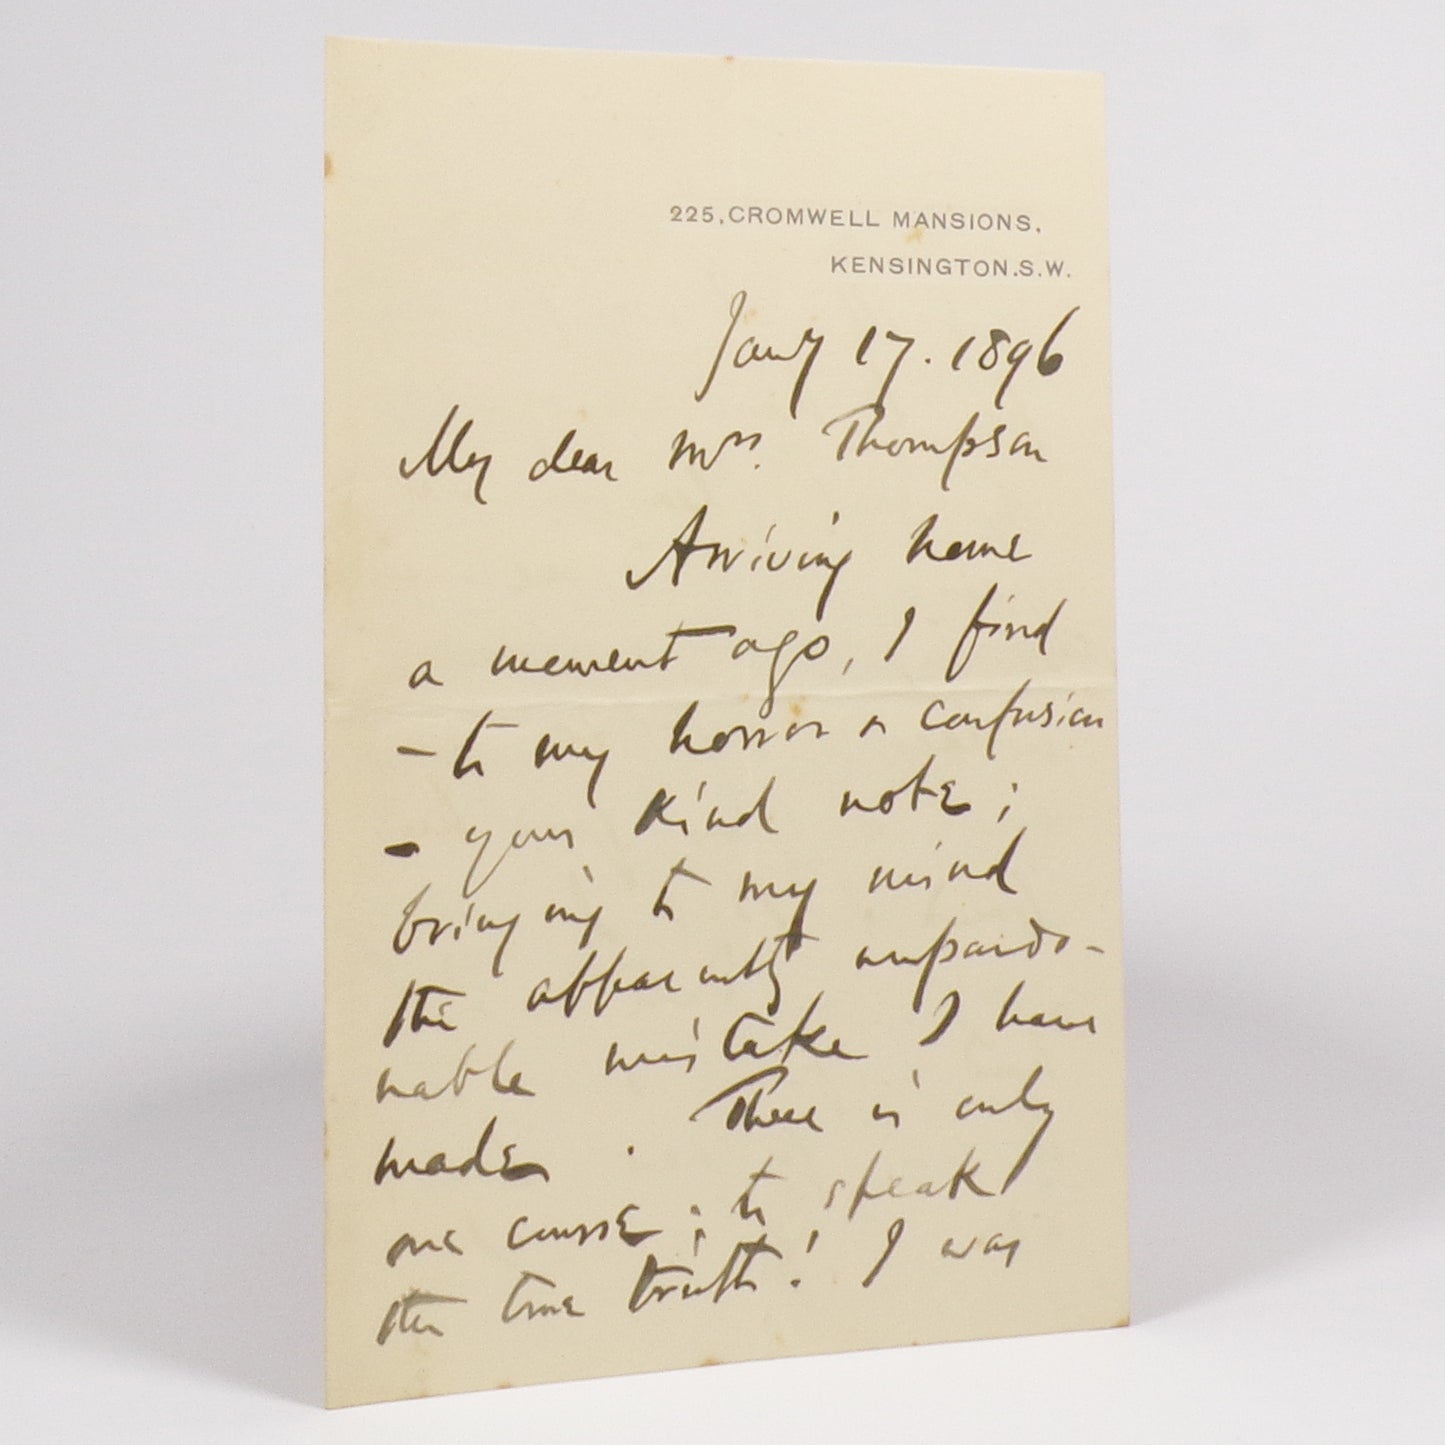 225, CROMWELL MANSIONS,
KENSINGTON.S.W.
Jany 17. 1896
My dear Mrs. Thompson
Arriving home
a moment ago, I find
- to my horror & confusion
- your kind note;
bringing to my mind
the apparently unpardo-
nable mistake I have
made. There is only
one course; to speak
the true truth! I was